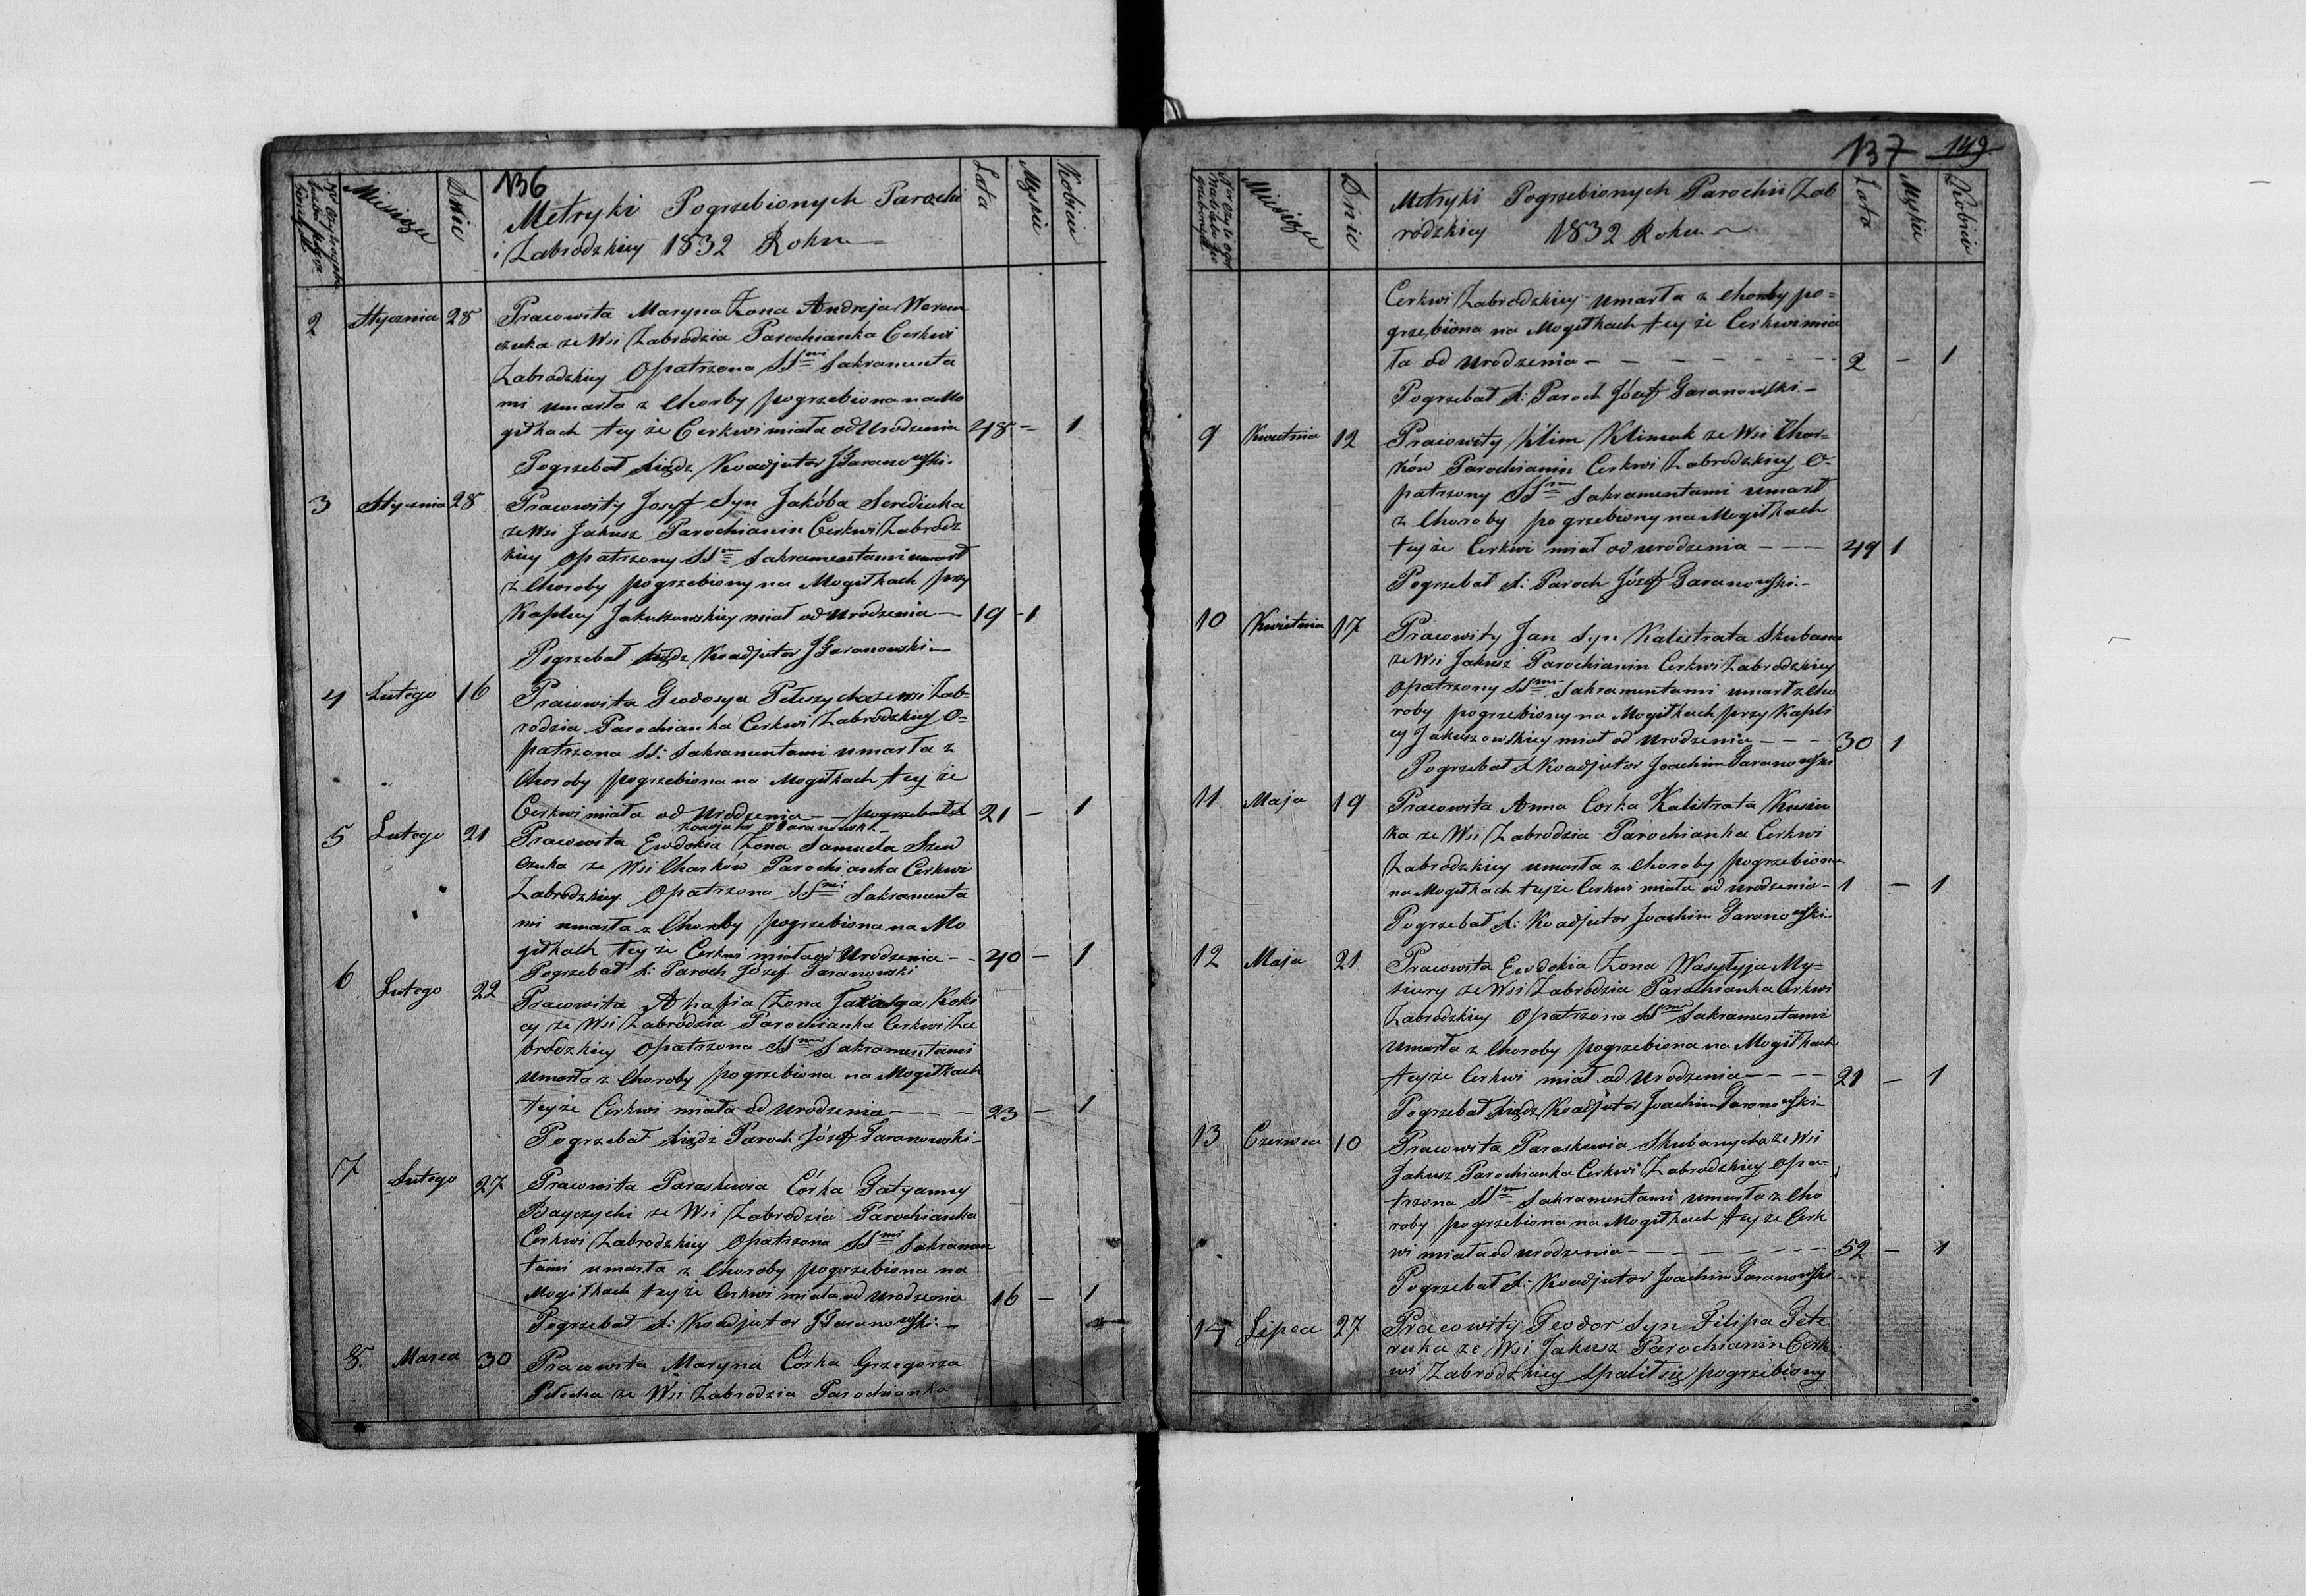 136
Miesiąc
Dnie
Metryki Pogrzebionych Parochi
i Zabrodzkiey 1832 Roku
Lata
Męskie
Kobiece
2 Stycznia 28 Pracowita Maryna Zona Andreja Worow
czuka ze Wsi Zabrodzia Parochianka Cerkwi
Zabrodzkiey Opatrzona SSmi Sakramenta
mi umarła z Choroby pogrzebiona na Mo
giłkach tey że Cerkwi miała od Urodzenia 48 — 1
Pogrzebał Xiądz Koadjutor J Garanowski.
3 Stycznia 28 Pracowity Josyf Syn Jakóba Serediuka
ze Wsi Jakusz Parochianin Cerkwi Zabrodz
kiey Opatrzony SSm Sakramentami umarł
z Choroby pogrzebiony na Mogiłkach przy
Kaplicy Jakuszowskiey miał od Urodzenia — 19 — 1
Pogrzebał Xiądz Koadjutor J Garanowski —
4 Lutego 16 Pracowita Geodosya Pełszycha ze wsi Zab-
rodzia Parochianka Cerkwi Zabrodzkiey O-
patrzona SS: Sakramentami umarła z
Choroby pogrzebiona na Mogiłkach tey że
Cerkwi miała od Urodzenia — pogrzebał X 21 — 1
Koadjutor J Garanowski —
5 Lutego 21 Pracowita Ewdokia Zona Samuela Szew
czuka ze Wsi Charków Parochianka Cerkwi
Zabrodzkiey Opatrzona SSmi Sakramenta
mi umarła z Choroby pogrzebiona na Mo
giłkach tey że Cerkwi miała od Urodzenia — 40 — 1
Pogrzebał X: Paroch Józef Garanowski
6 Lutego 22 Pracowita Ahafia Zona Koki
cy ze Wsi Zabrodzia Parochianka Cerkwi Za
brodzkiey Opatrzona SSmi Sakramentami
umarła z Choroby pogrzebiona na Mogiłkach
teyże Cerkwi miała od Urodzenia — — — 23 — 1
Pogrzebał Xiądz Paroch Józef Garanowski —
7 Lutego 27 Pracowita Paraskewia Córka Tatyanny
Bayczychi ze Wsi Zabrodzia Parochianka
Cerkwi Zabrodzkiey Opatrzona SSmi Sakramen
tami umarła z Choroby pogrzebiona na
Mogiłkach teyże Cerkwi miała od Urodzenia 16 — 1
Pogrzebał X: Koadjutor J Garanowski. —
8. Marca 30 Pracowita Maryna Córka Grzegorza
Pełecha ze Wsi Zabrodzia Parochianka
137 149
Miesiąc
Dnie
Metryki Pogrzebionych Parochii Zab
rodzkiey 1832 Roku
Lata
Męskie
Kobiece
Cerkwi Zabrodzkiey umarła z Choroby po=
grzebiona na Mogiłkach tey że Cerkwi mia
ła od Urodzenia — — — — — — — 2 — 1
Pogrzebał X: Paroch Józef Garanowski —
9 Kwietnia 12 Pracowity Klim Klimuk ze Wsi Char=
ków Parochianin Cerkwi Zabrodzkiey O-
patrzony SSmi Sakramentami umarł
z Choroby pogrzebiony na Mogiłkach
teyże Cerkwi miał od urodzenia — — — 49 1
Pogrzebał X: Paroch Józef Garanowski. —
10 Kwietnia 17 Pracowity Jan Syn Kalistrata Skubana
ze Wsi Jakusz Parochianin Cerkwi Zabrodzkiey
Opatrzony SSmi Sakramentami umarł z Cho
roby pogrzebiony na Mogiłkach przy Kapli
cy Jakuszowskiey miał od Urodzenia — — — 30 1
Pogrzebał X Koadjutor Joachim Garanowski
11 Maja 19 Pracowita Anna Corka Kalistrata Kusiu
ka ze Wsi Zabrodzia Parochianka Cerkwi
Zabrodzkiey umarła z Choroby pogrzebiona
na Mogiłkach teyże Cerkwi miała od urodzenia — 1 — 1
Pogrzebał X: Koadjutor Joachim Garanowski.
12 Maja 21 Pracowita Ewdokia Zona Wasylyja My=
siury ze Wsi Zabrodzia Parochianka Cerkwi
Zabrodzkiey Opatrzona SSmi Sakramentami
umarła z Choroby pogrzebiona na Mogiłkach
teyże Cerkwi miał od Urodzenia — — — — 21 — 1
Pogrzebał Xiądz Koadjutor Joachim Garanowski —
13 Czerwca 10 Pracowita Paraskewia Skubanycha ze Wsi
Jakusz Parochianka Cerkwi Zabrodzkiey Opa-
trzona SSm Sakramentami umarła z Cho
roby pogrzebiona na Mogiłkach tey że Cerk
wi miała od urodzenia — — — — — — — 52 — 1
Pogrzebał X: Koadjutor Joachim Garanowski —
14 Lipca 27 Pracowity Teodor Syn Filipa Pete
ruka ze Wsi Jakusz Parochianin Cerk
wi Zabrodzkiey Spalił się pogrzebiony